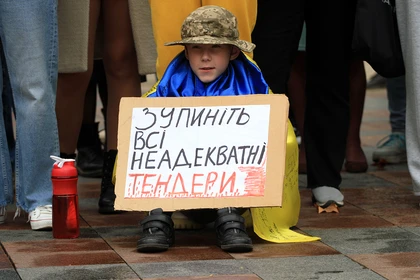 ЗУПИНІТЬ
ВСІ
НЕАДЕКВАТНІ
ТЕНДЕРИ